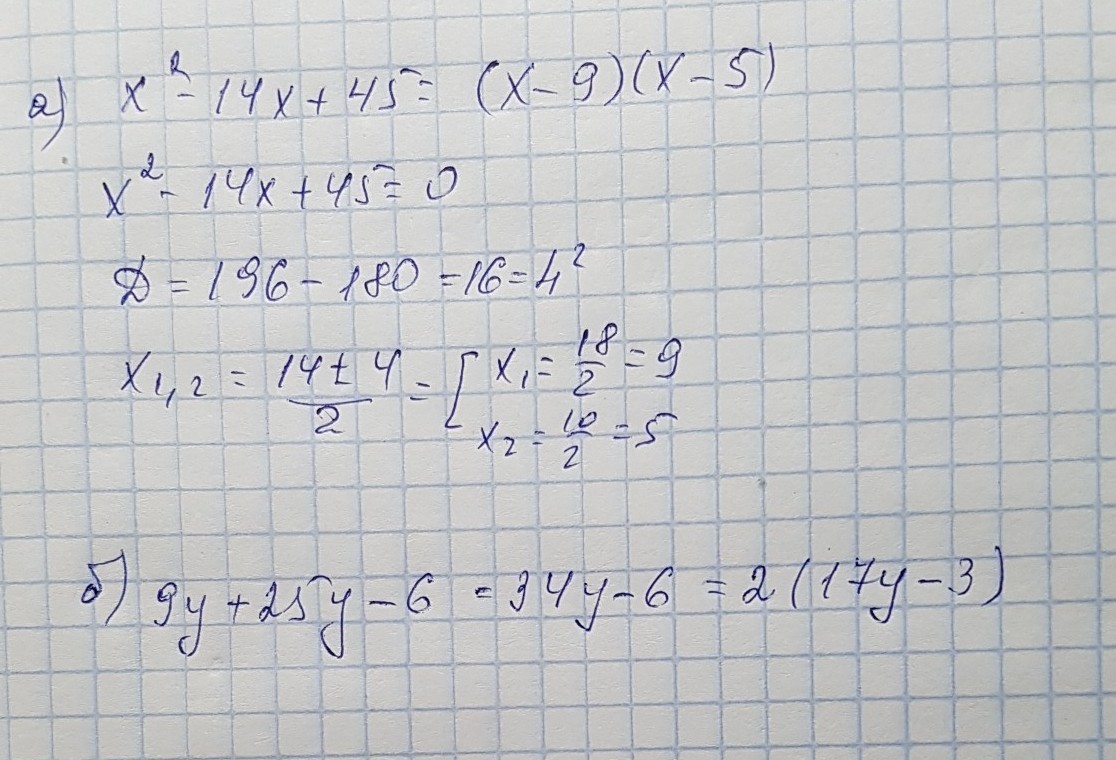 а) x² - 14x + 45 = (x - 9)(x - 5)
x² - 14x + 45 = 0
D = 196 - 180 = 16 = 4²
x₁,₂ = (14 ± 4)/2 = [ x₁ = 18/2 = 9
x₂ = 10/2 = 5
б) 9y + 25y - 6 = 34y - 6 = 2(17y - 3)